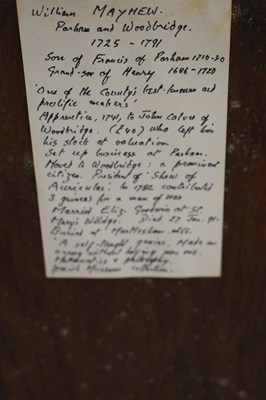 William MAYHEW.
Parham and Woodbridge.
1725 - 1791
Son of Francis of Parham 1710-30
Grand-son of Henry 1686-1720
'One of the County's best-known and
prolific makers'
Apprentice, 1741, to John Calver of
Woodbridge. (£40) who left him
his stock at valuation.
Set up business at Parham.
Moved to Woodbridge: a prominent
citizen. President of 'Show of
Auriculas'. In 1782 contributed
3 guineas for a man of war
Married Eliz. Goodwin at St.
Mary's Wdbdge. Died 27 Jan. 91.
Buried at Martlesham
'A self-taught genius. Made an
orrery without having seen one.
Mathematics & philosophy.
Ipswich Museum collection.